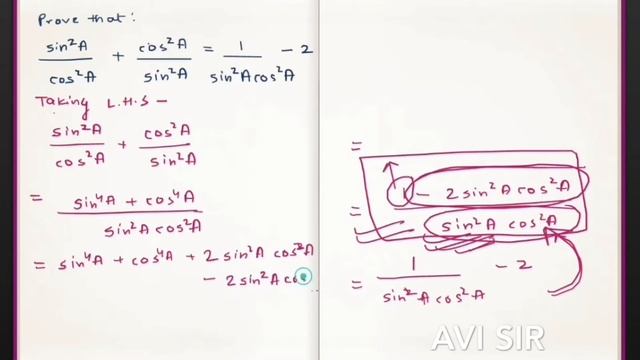 Prove that:
sin²A/cos²A + cos²A/sin²A = 1/sin²A cos²A - 2
Taking L.H.S -
sin²A/cos²A + cos²A/sin²A
= sin⁴A + cos⁴A / sin²A cos²A
= sin⁴A + cos⁴A + 2 sin²A cos²A
- 2 sin²A cos
=
= 1 - 2 sin²A cos²A / sin²A cos²A
= 1/sin²A cos²A - 2
AVI SIR